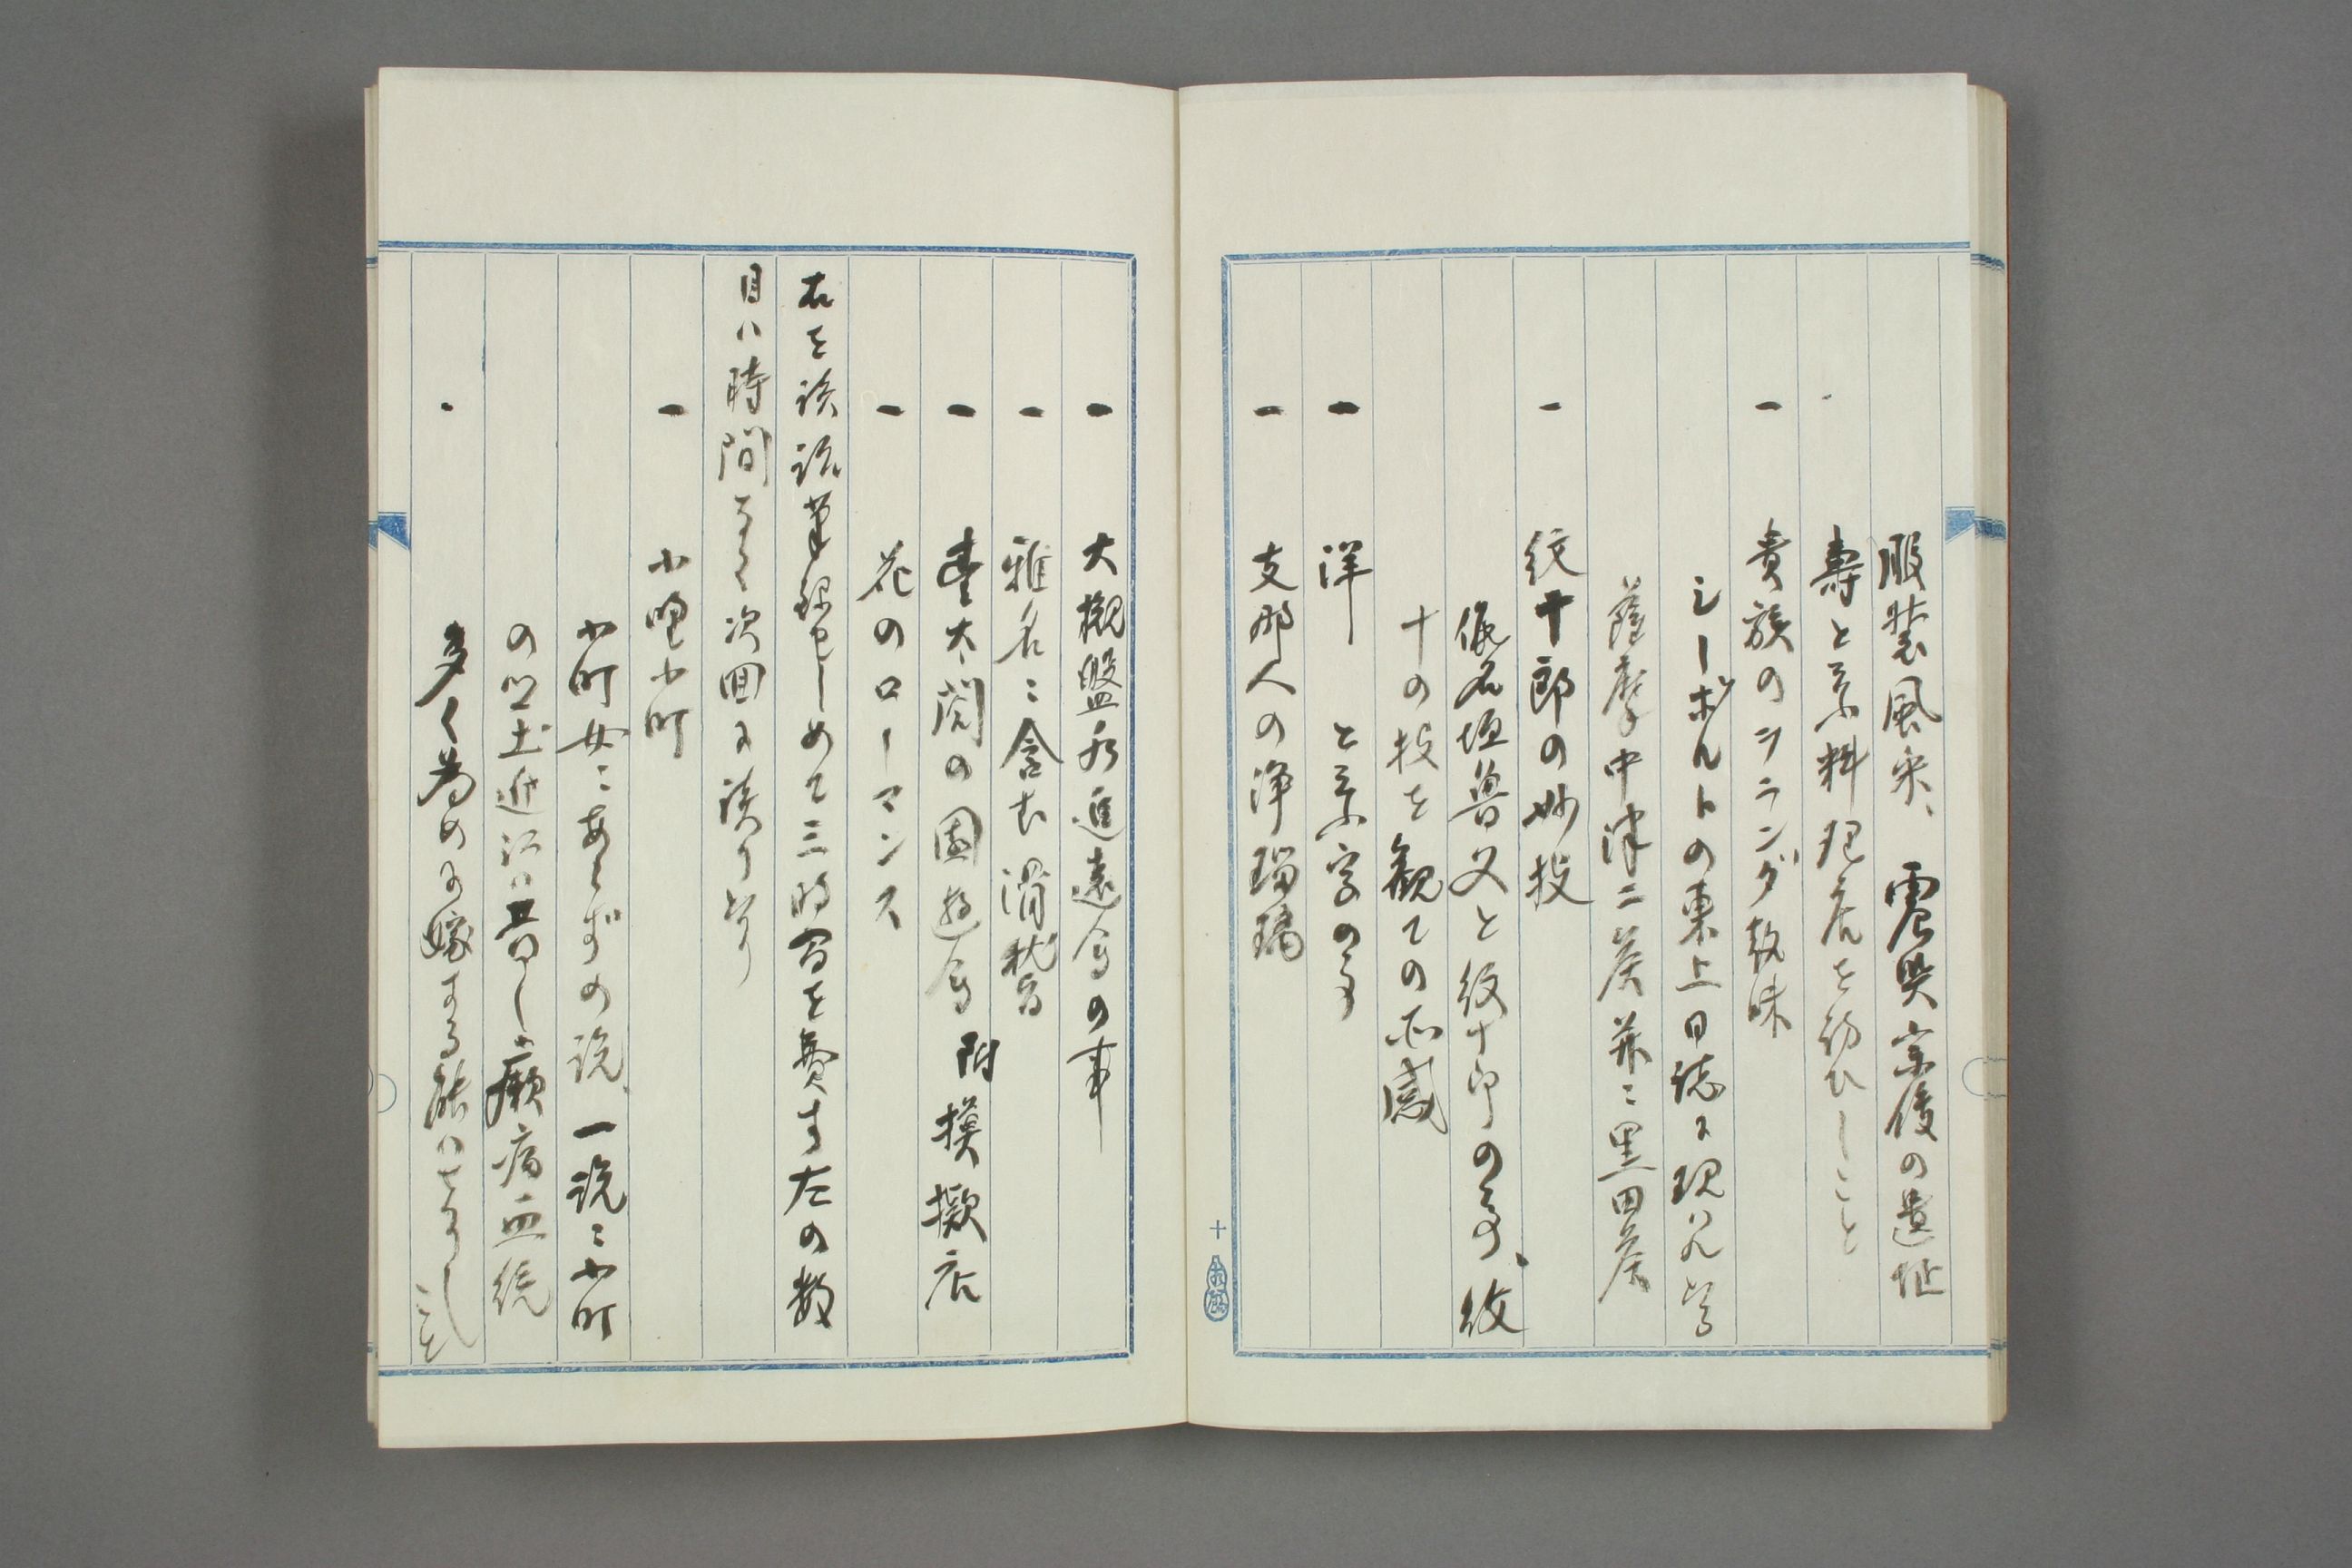 服装風采、震災前後の遺址
壽と云ふ料理店を訪ひしこと
一 貴族のヲランダ趣味
シーボルトの東上日誌に現はれたる
薩摩中津二侯并ニ黒田侯
一 紋十郎の妙技
仮名垣魯文と紋十郎の事、紋
十の技を観ての所感
一 洋 と云ふ字の事
一 支那人の浄瑠璃
十
一 大槻盤水追遠会の事
一 雅名ニ含む滑稽
一 豊太閤の園遊会 附 模擬店
一 花のローマンス
右を談話筆録せしめて三時間を費す左の数
目ハ時間なく次回に譲りたり
一 小野小町
小町女ニあらずの説、一説ニ小町
の出土近江ハ昔し癩病血統
多く為めに嫁する能ハさりしこと